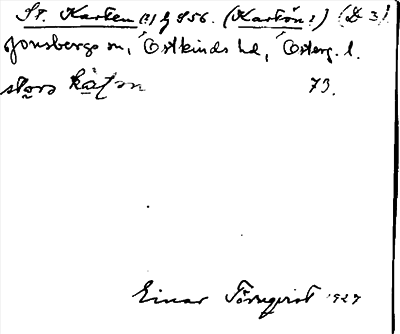 St. Karten (?) J 956. (Kartön?) (D 3).
Jonsbergs sn, Östkinds hd, Österg. l.
stora 73.
Einar Törnqvist 1927